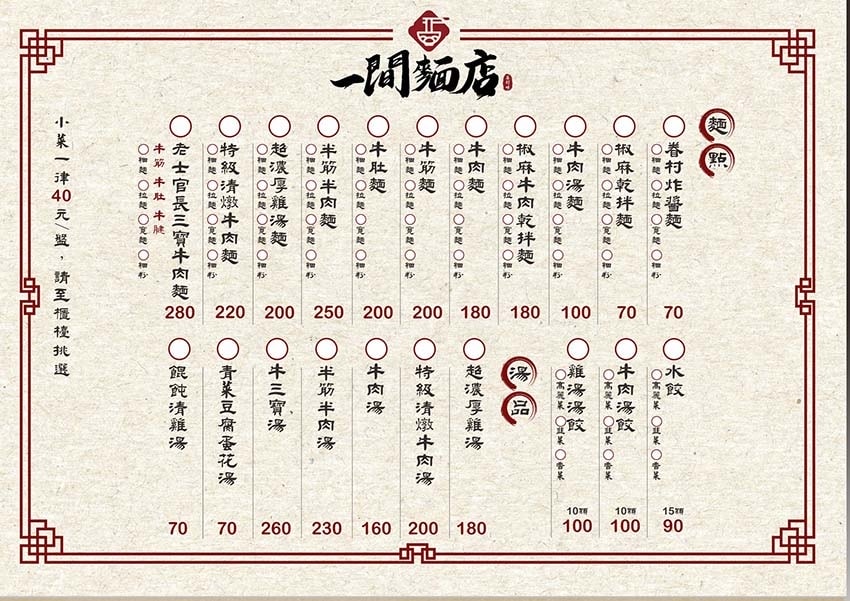 一間麵店
麵點
眷村炸醬麵
細麵 拉麵 寬麵 細粉
70
椒麻乾拌麵
細麵 拉麵 寬麵 細粉
70
牛肉湯麵
細麵 拉麵 寬麵 細粉
100
椒麻牛肉乾拌麵
細麵 拉麵 寬麵 細粉
180
牛肉麵
細麵 拉麵 寬麵 細粉
180
牛筋麵
細麵 拉麵 寬麵 細粉
200
牛肚麵
細麵 拉麵 寬麵 細粉
200
半筋半肉麵
細麵 拉麵 寬麵 細粉
250
超濃厚雞湯麵
細麵 拉麵 寬麵 細粉
200
特級清燉牛肉麵
細麵 拉麵 寬麵 細粉
220
老士官長三寶牛肉麵
牛筋 牛肚 牛腱
細麵 拉麵 寬麵 細粉
280
小菜一律40元/盤，請至櫃檯挑選
水餃
高麗菜 韭菜 香菜
15顆
90
牛肉湯餃
高麗菜 韭菜 香菜
10顆
100
雞湯湯餃
高麗菜 韭菜 香菜
10顆
100
湯品
超濃厚雞湯
180
特級清燉牛肉湯
200
牛肉湯
160
半筋半肉湯
230
牛三寶湯
260
青菜豆腐蛋花湯
70
餛飩清雞湯
70